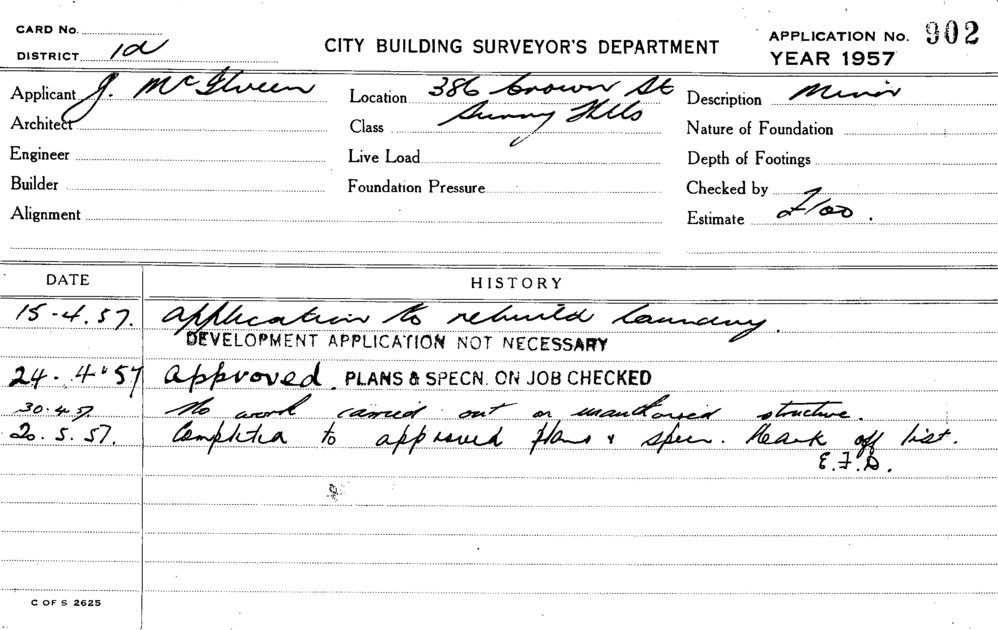 CARD No.
DISTRICT 1a
CITY BUILDING SURVEYOR'S DEPARTMENT
APPLICATION No. 902
YEAR 1957
Applicant J. McIlveen
Location 386 Crown St
Surry Hills
Description Minor
Architect
Class
Nature of Foundation
Engineer
Live Load
Depth of Footings
Builder
Foundation Pressure
Checked by
Alignment
Estimate £100.
DATE
HISTORY
15-4.57. Application to rebuild laundry.
DEVELOPMENT APPLICATION NOT NECESSARY
24-4-57 Approved. PLANS & SPECN. ON JOB CHECKED
30.4.57. No work carried out on unauthorised structure.
20.5.57. Completed to approved plans & specn. Mark off list.
E.F.D.
C OF S 2625